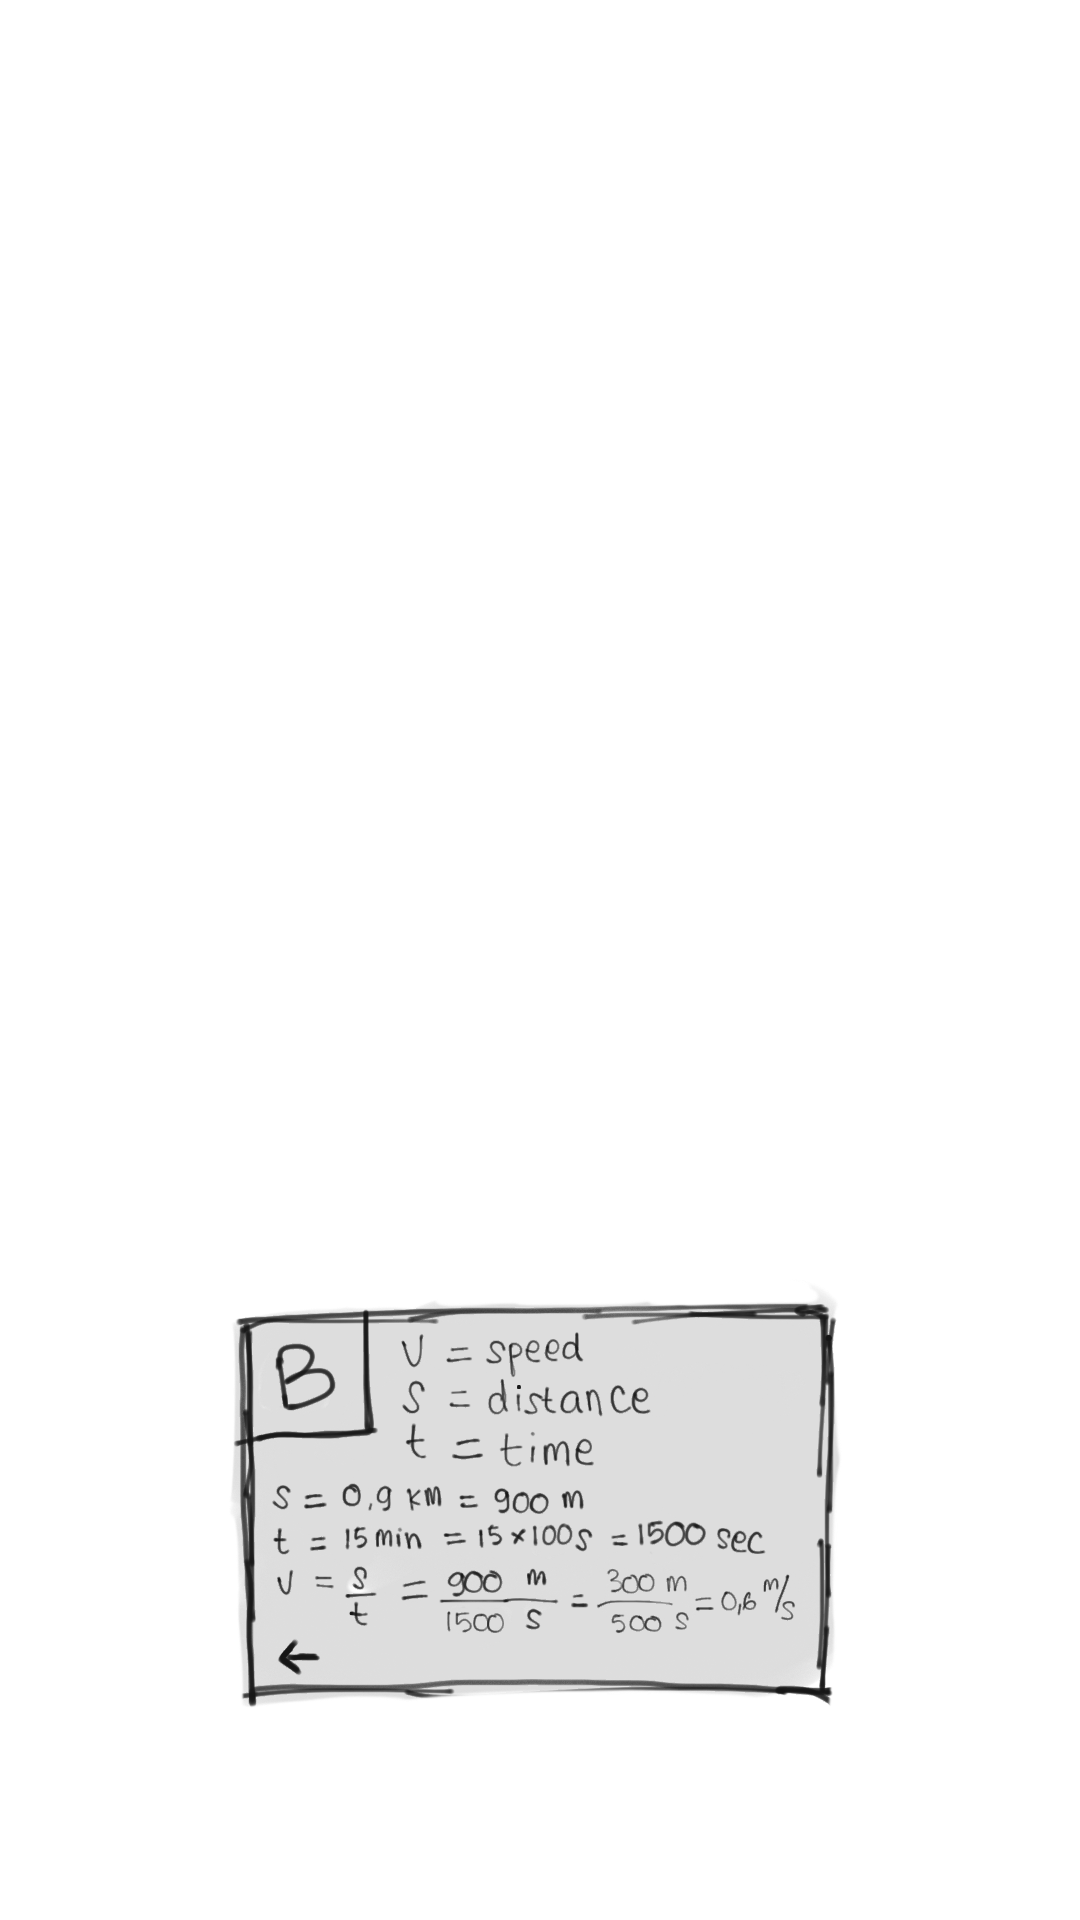 B
V = speed
S = distance
t = time
S = 0,9 km = 900 m
t = 15 min = 15 × 100s = 1500 sec
V = s/t = 900 m/1500 s = 300 m/500 s = 0,6 m/s
←